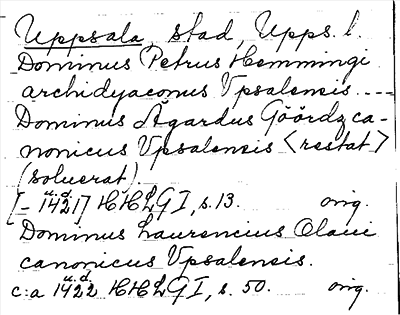 Uppsala, stad, Upps. l.
Dominus Petrus Hemmingi
archidyaconus Vpsalensis ----
Dominus Ågardus Göördz ca-
nonicus Vpsalensis <restat>
(soluerat).
[- u.d. 1421] HHLG I, s. 13. orig.
Dominus Laurencius Olaui
canonicus Vpsalensis.
c:a u.d. 1422 HHLG I, s. 50. orig.